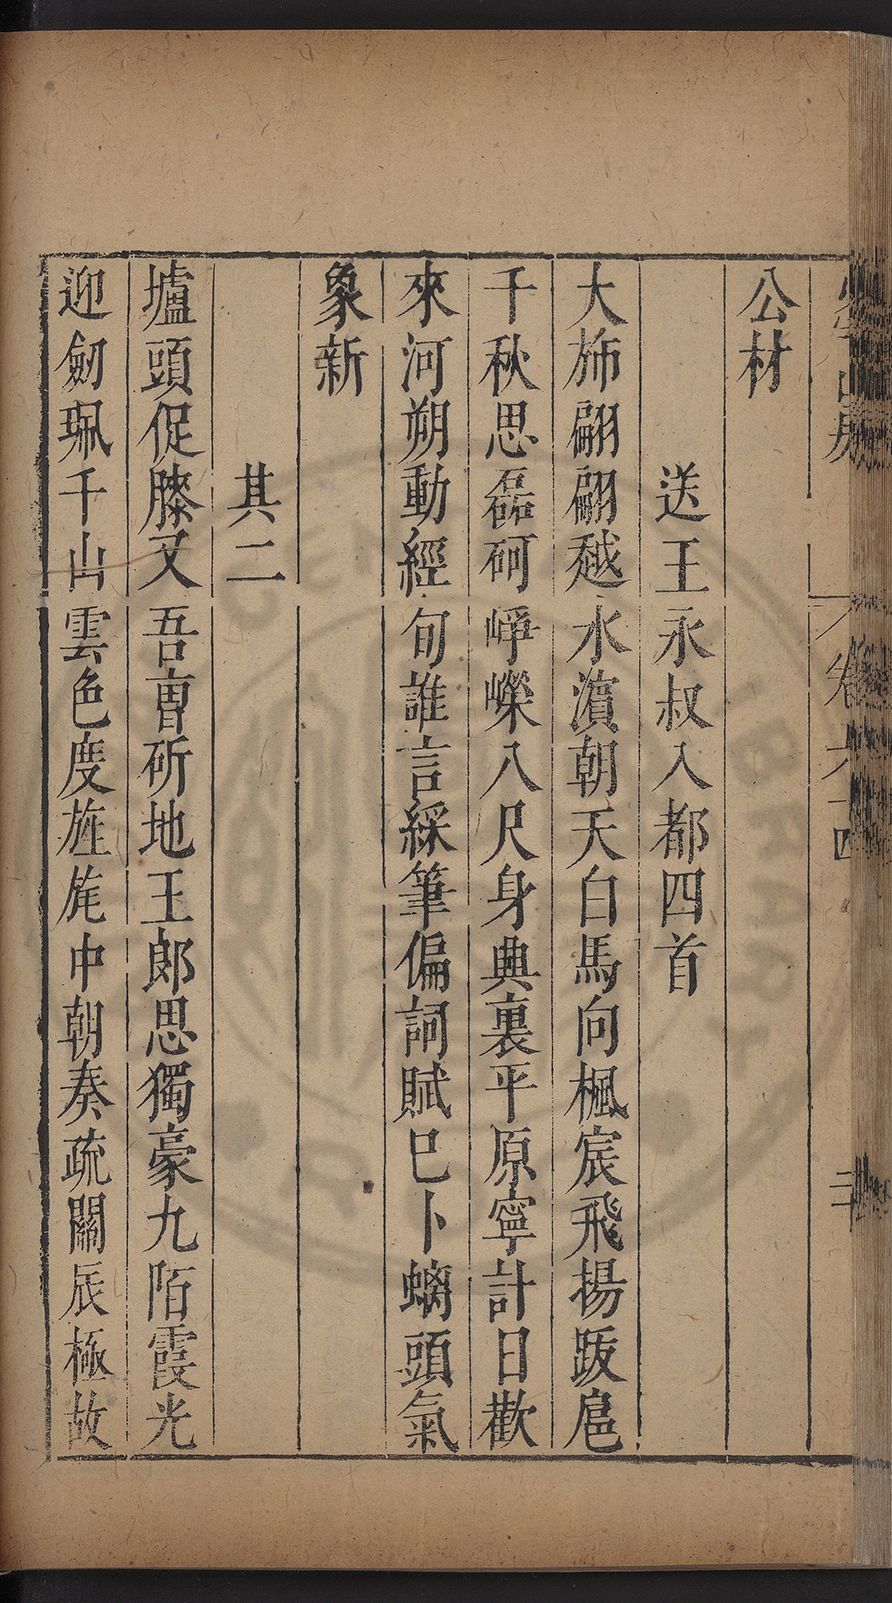 卷六十四
公材
送王永叔入都四首
大斾翩翩越水濵朝天白馬向楓宸飛揚跋扈
千秋思磊砢崢嶸八尺身典裏平原寧計日歡
來河朔動經旬誰言綵筆偏詞賦巳卜螭頭氣
象新
其二
壚頭促膝又吾曹斫地王郎思獨豪九陌霞光
迎劒珮千山雲色度旌旄中朝奏疏關辰極故